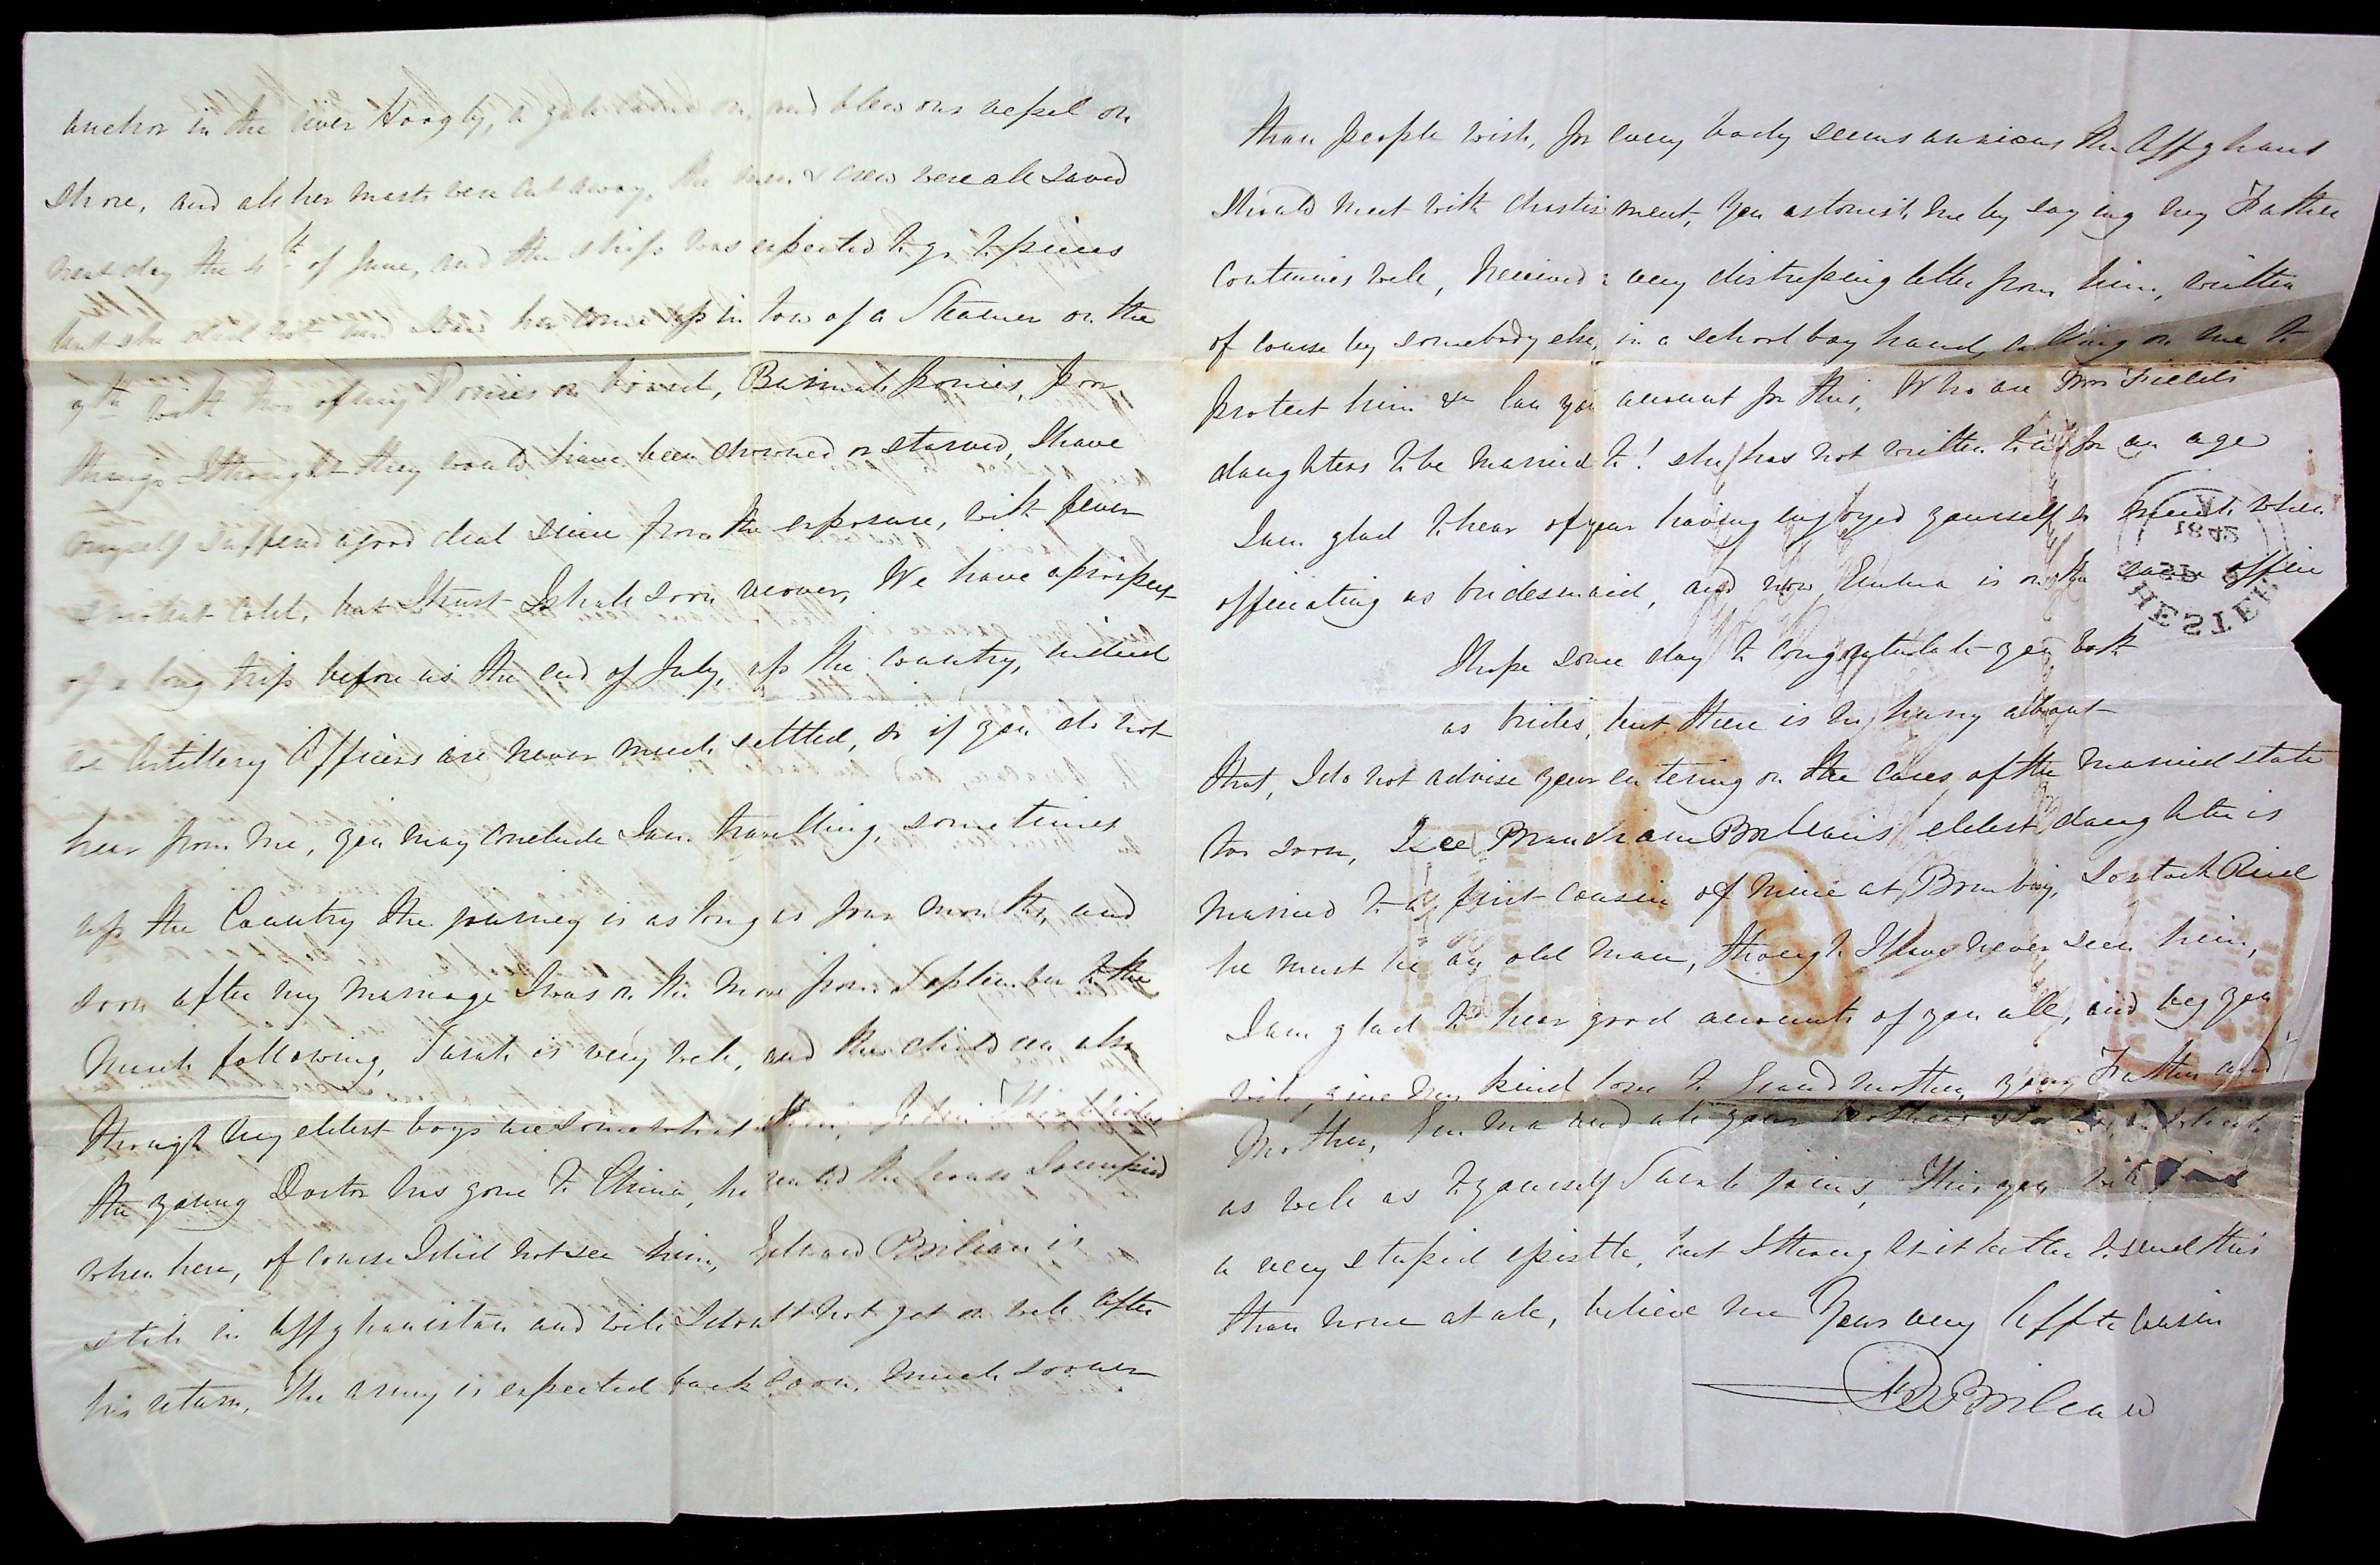 anchor in the river Hoogly, a gale came on, and blew our vessel on
shore, and all her masts were cut away, the men & crew were all saved
next day the 4th of June, and the ship was expected to go to pieces
but she did not and I saw her come up in tow of a Steamer on the
9th with two of my Ponies on board, Burmah ponies, poor
things I thought they would have been drowned or starved, I have
myself suffered a good deal since from the exposure, with fever
& violent cold, but I trust I shall soon recover, We have a prospect
of a long trip before us the end of July, up the country, indeed
we Artillery Officers are never much settled, so if you do not
hear from me, you may conclude I am travelling, sometimes
up the Country the journey is as long as four months, and
soon after my marriage I was on the move from September to the
March following, Sarah is very well, and the children also
though my eldest boys are somewhat thin,
the young Doctor has gone to China, he the house I occupied
when here, of course I did not see him, Edward Boileau is
still in Affghanistan and will I doubt not get on well after
his return, The army is expected back soon, much sooner
than people wish, for every body seems anxious the Affghans
should meet with chastisement, You astonish me by saying my Father
continues well, I received a very distressing letter from him, written
of course by somebody else, in a school boy hand, calling on me to
protect him &c Can you account for this, Who are Mrs Fields
daughters to be married to! she has not written to us for an age
I am glad to hear of your having enjoyed yourself so much when
officiating as bridesmaid, and now Emma is on the same office
I hope some day to congratulate you both
as brides, but there is no hurry about
that, I do not advise your entering on the cares of the married state
too soon, I see Boileau's eldest daughter is
married to a first cousin of mine at Bombay,
he must be an old man, though I have never seen him,
I am glad to hear good accounts of you all, and beg you
will give my kind love to Grandmother, your Father and
Mother, Emma and all your brothers
as well as to yourself Sarah joins, This you will find
a very stupid epistle, but I thought it better to send this
than none at all, believe me Your very Affte Cousin
Boileau